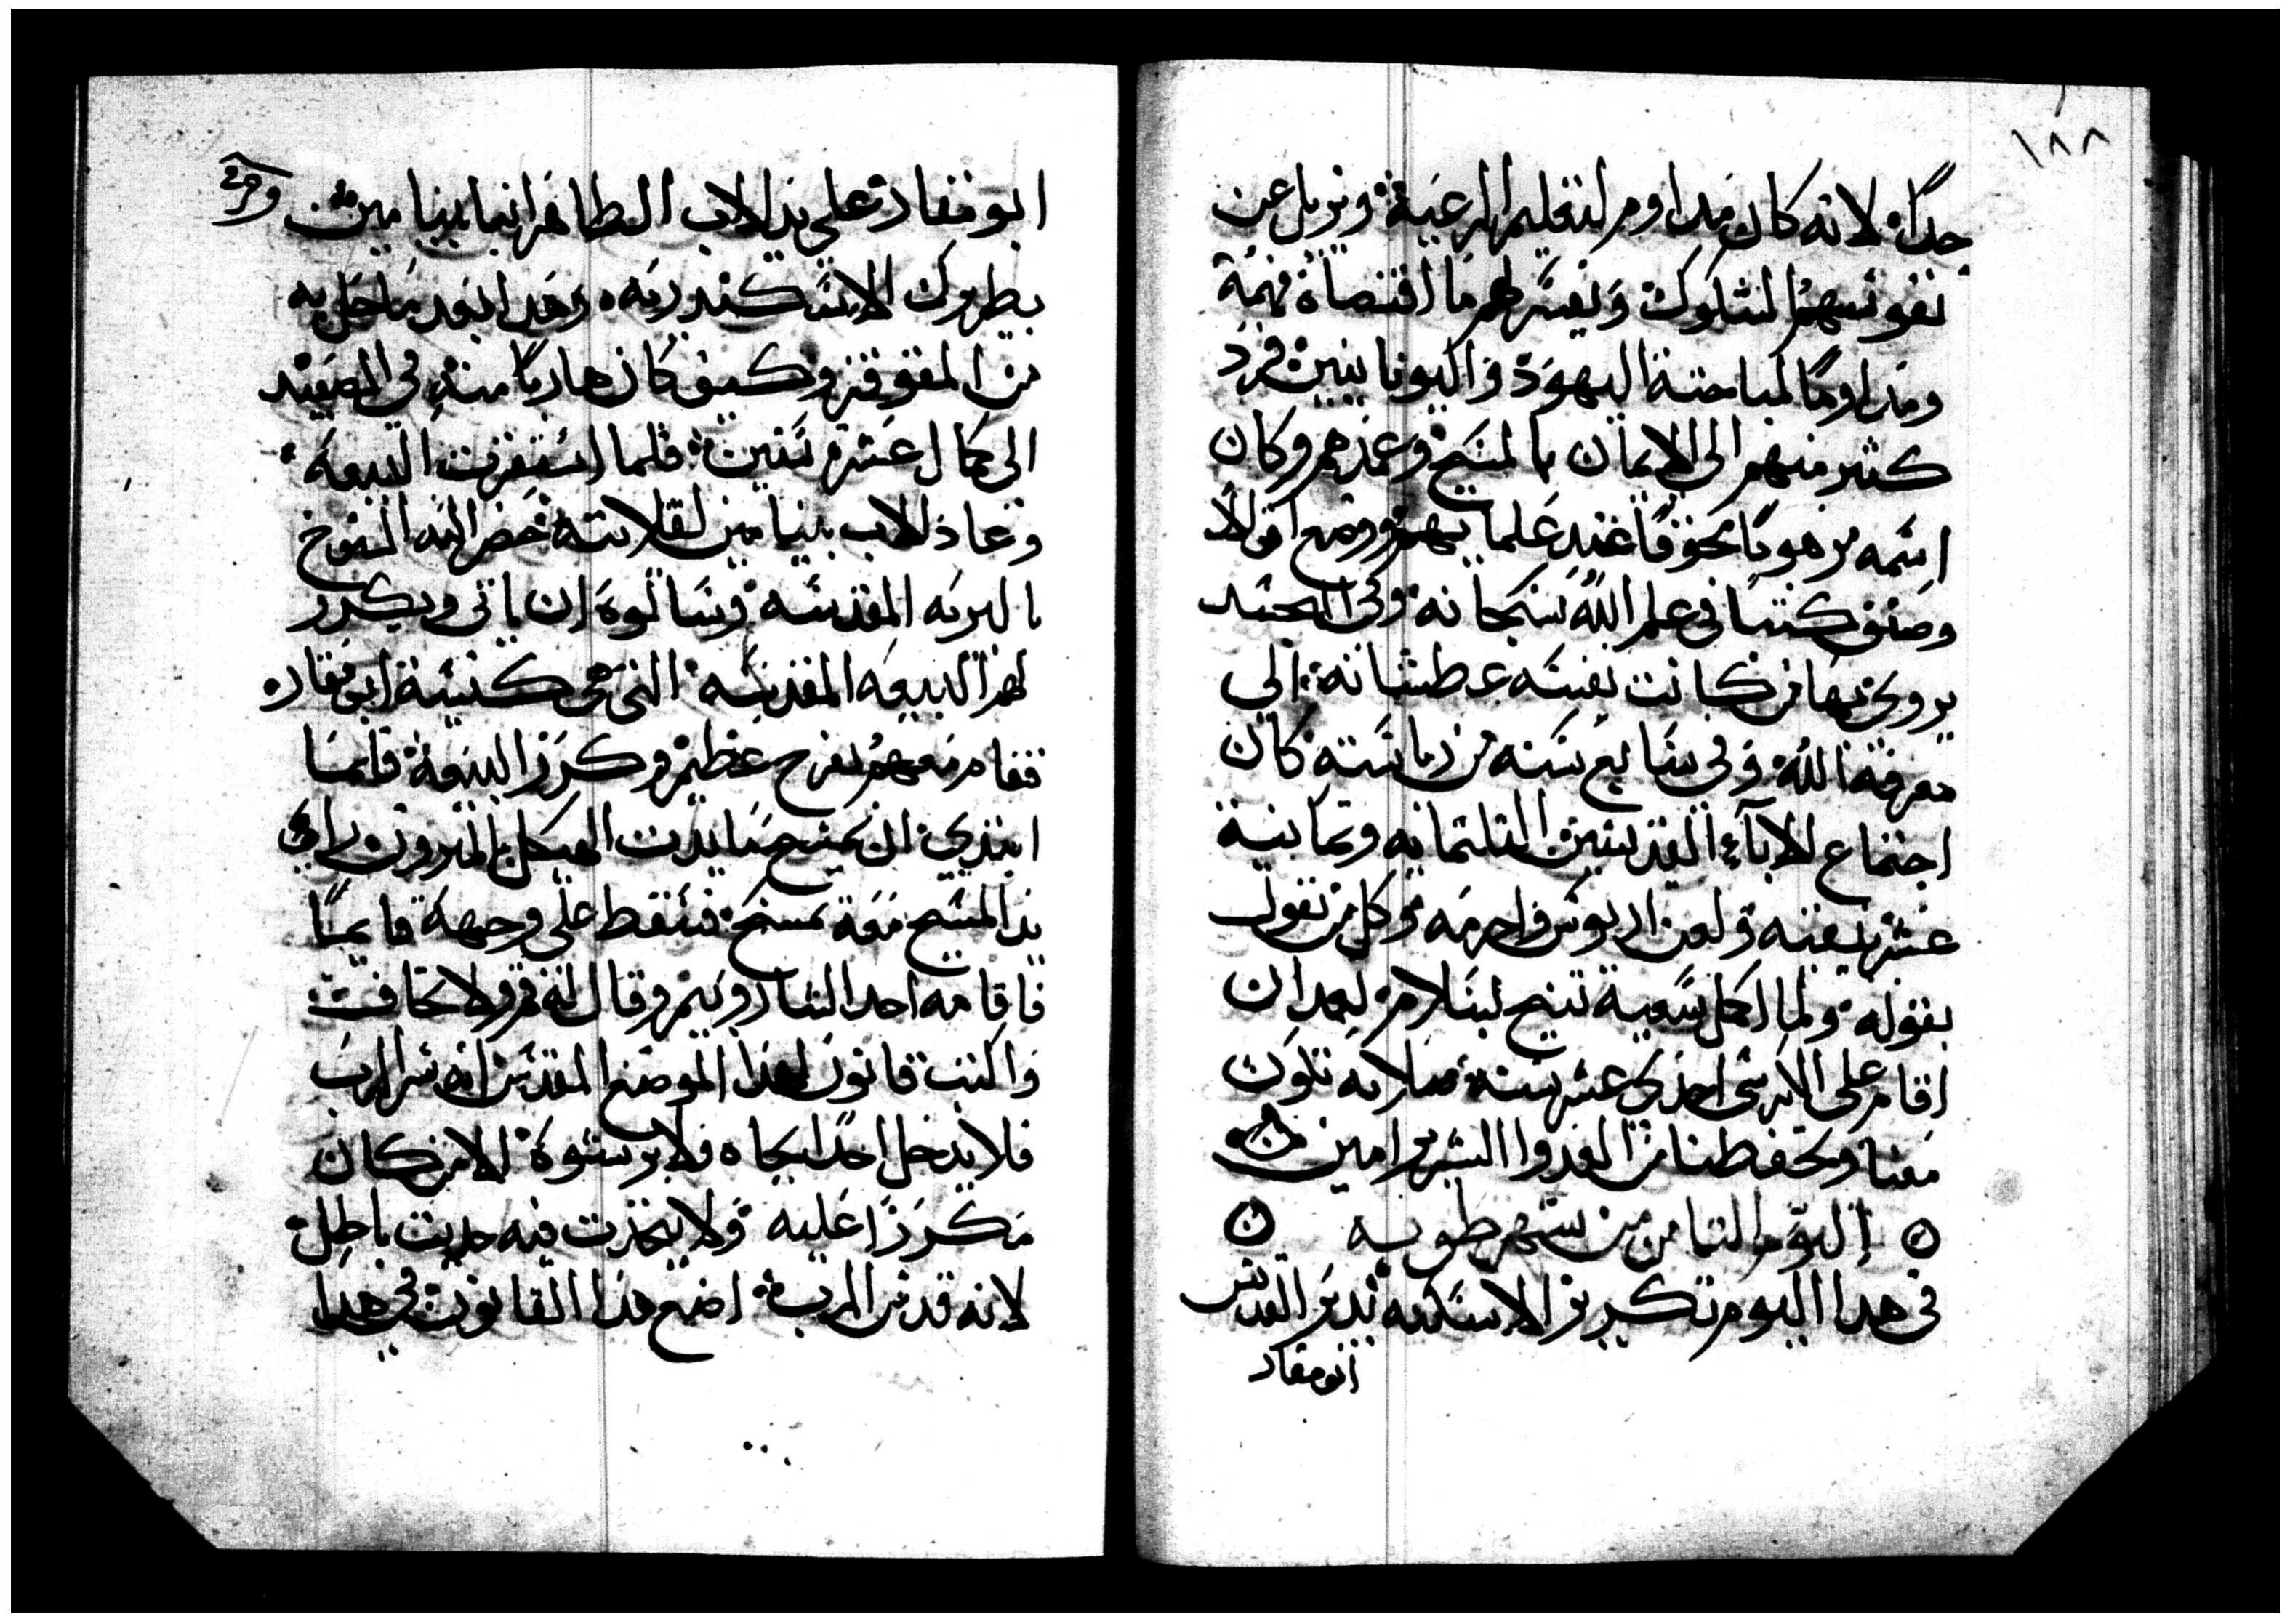 ١٨٨
جداً لانه كان مداوم لتعليم الرعية ويزيل عن
نفوسهم الشكوك ويفسر لهم ما اقتصاه فهمه
ومداوماً لمباحتة اليهود واليونانيين فرد
كثير منهم الى الايمان بالمسيح وعمدهم وكان
اسمه مرهوباً مخوفاً عند علمايهم ووضع اقوالاً
وصنف كتباً في علم الله سبحانه وفي التجسد
يروي بها من كانت نفسه عطشانة الي
معرفة الله وفي سابع سنه من رياسته كان
اجتماع الاباء القديسين التلتمايه وتمانية
عشر بنيقيه ولعن اريوس واحرمه وكل من يقول
بقوله ولما اكمل سعيه تنيح بسلام بعد ان
اقام على الكرسى احدي عشر سنه صلاته تكون
معنا وتحفظنا من العدوا الشرير امين
اليوم التامن من شهر طوبه
في هدا اليوم تكريز الاسكنه بدير القديس
ابو مقار
ابو مقار على يد الاب الطاهر انبا بنيامين
بطريرك الاسكندريه وهدا بعد ما حل به
من المقوقز وكيف كان هارباً منه في الصعيد
الى كمال عشرة سنين فلما استقرت البيعه
وعاد الاب بنيامين لقلايته حضر اليه الشيوخ
بالبريه المقدسه وسالوه ان ياتى ويكرز
لهم البيعه المقدسه التى هى كنيسة ابو مقار
فقام معهم بفرح عظيم وكرز البيعة فلما
ابتدي ان يمسح مايدت الهيكل بالميرون راي
يد المسيح معه تمسح فسقط على وجهه قايماً
فاقامه احد السارويم وقال له قم ولا تخاف
واكتب قانون لهدا الموضع المقدس انه سر الرب
فلا يدخل احداً بجاه ولا برشوة الا من كان
مكرزاً عليه ولا يتحدت فيه حديت باطل
لانه قدس الرب اضع هدا القانون في هدا